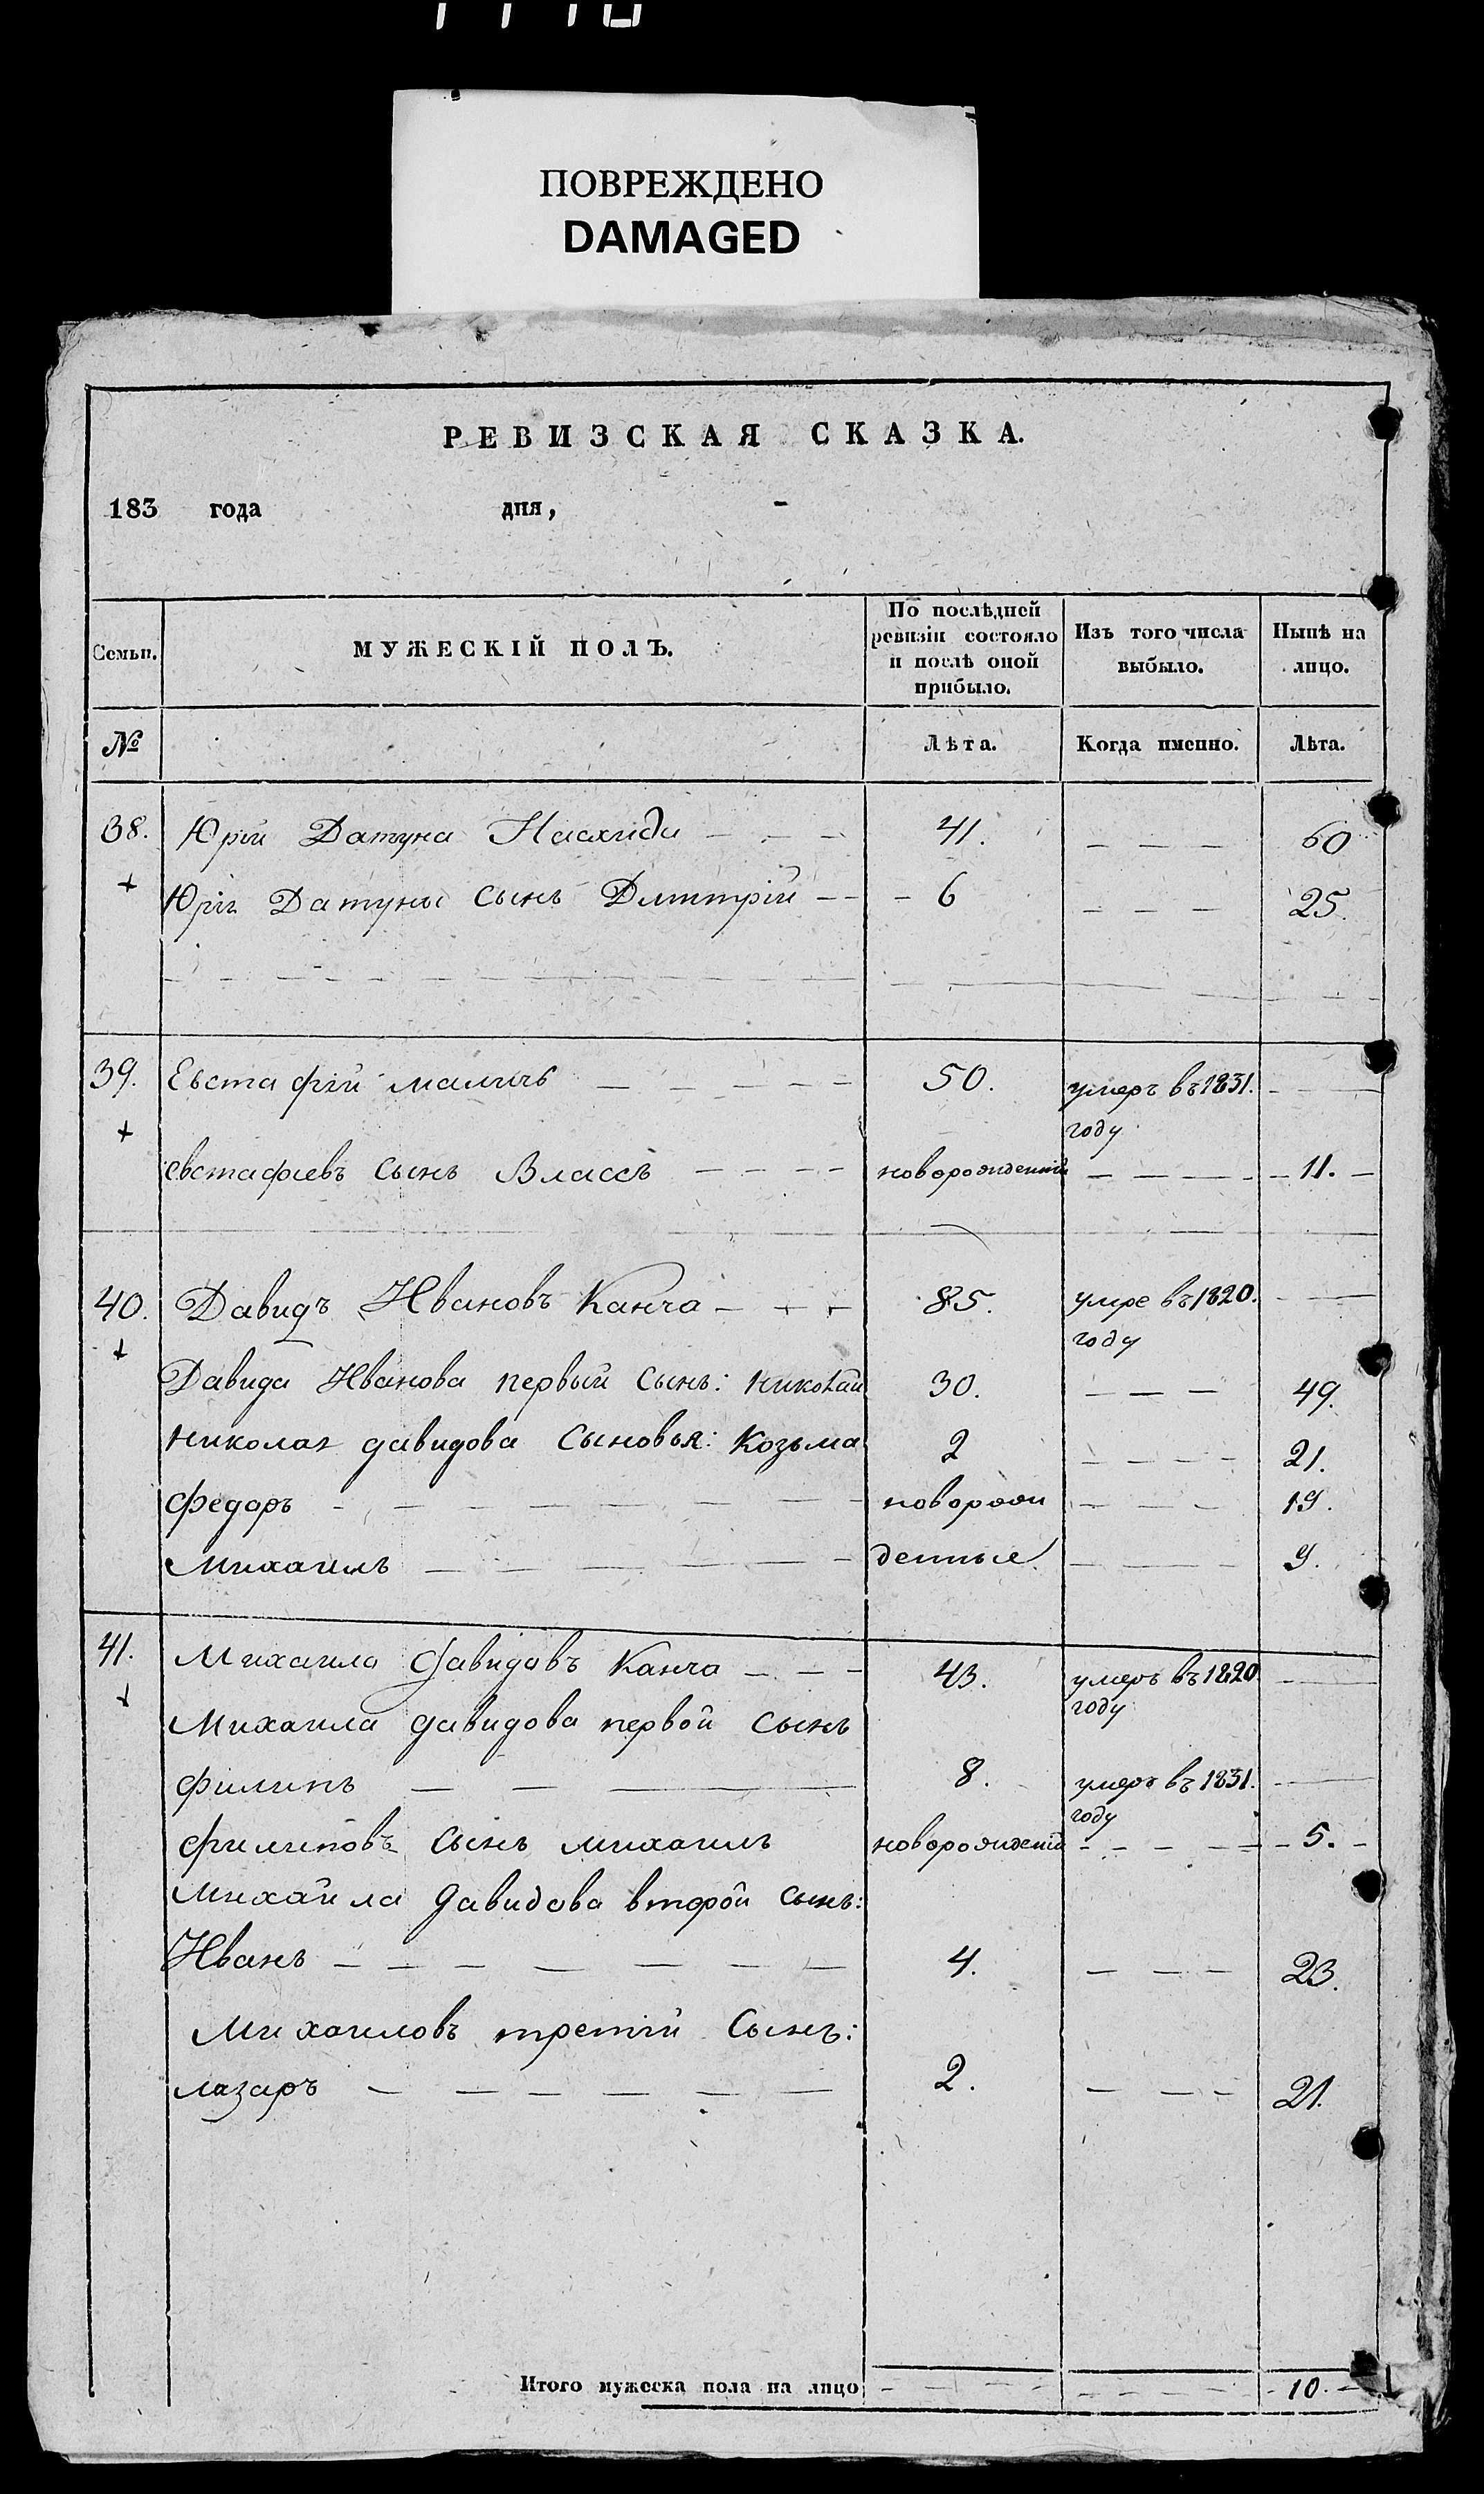 ПОВРЕЖДЕНО
DAMAGED
РЕВИЗСКАЯ СКАЗКА.
183 года дня,
Семьи. МУЖЕСКІЙ ПОЛЪ. По послѣдней ревизіи состояло и послѣ оной прибыло. Изъ того числа выбыло. Нынѣ на лицо.
№ Лѣта. Когда именно. Лѣта.
38. Юрій Датуна — — — 41. — — — 60
+ Юрія Датуны сынъ Дмитрій — — — 6 — — — 25.
39. Евстафій — — — — — 50. умеръ въ 1831. — —
+ году
евстафіевъ сынъ Влассъ — — — — новорожденній — — — — 11. —
40. Давидъ Ивановъ Канча — + + 85. умре въ 1820. — —
+ году
Давида Иванова первый сынъ: николай 30. — — — 49.
николая давидова сыновья: Козьма 2 — — — — 21.
федоръ — — — — — — — — новорож — — — 19.
михаилъ — — — — — — денные — — — 9.
41. Михаила Давидовъ Канча — — — 43. умеръ въ 1820 — —
+ году
Михаила давидова первой сынъ
филипъ — — — 8. умеръ въ 1831. —
году
филиповъ сынъ михаилъ новорожденій — — — — — 5. —
Михайла давидова второй сынъ:
Иванъ — — — — — — — 4. — — — 23.
Михаиловъ третій сынъ:
лазаръ — — — — — — 2. — — — 21.
Итого мужеска пола на лицо — — — — — — — — — 10. —